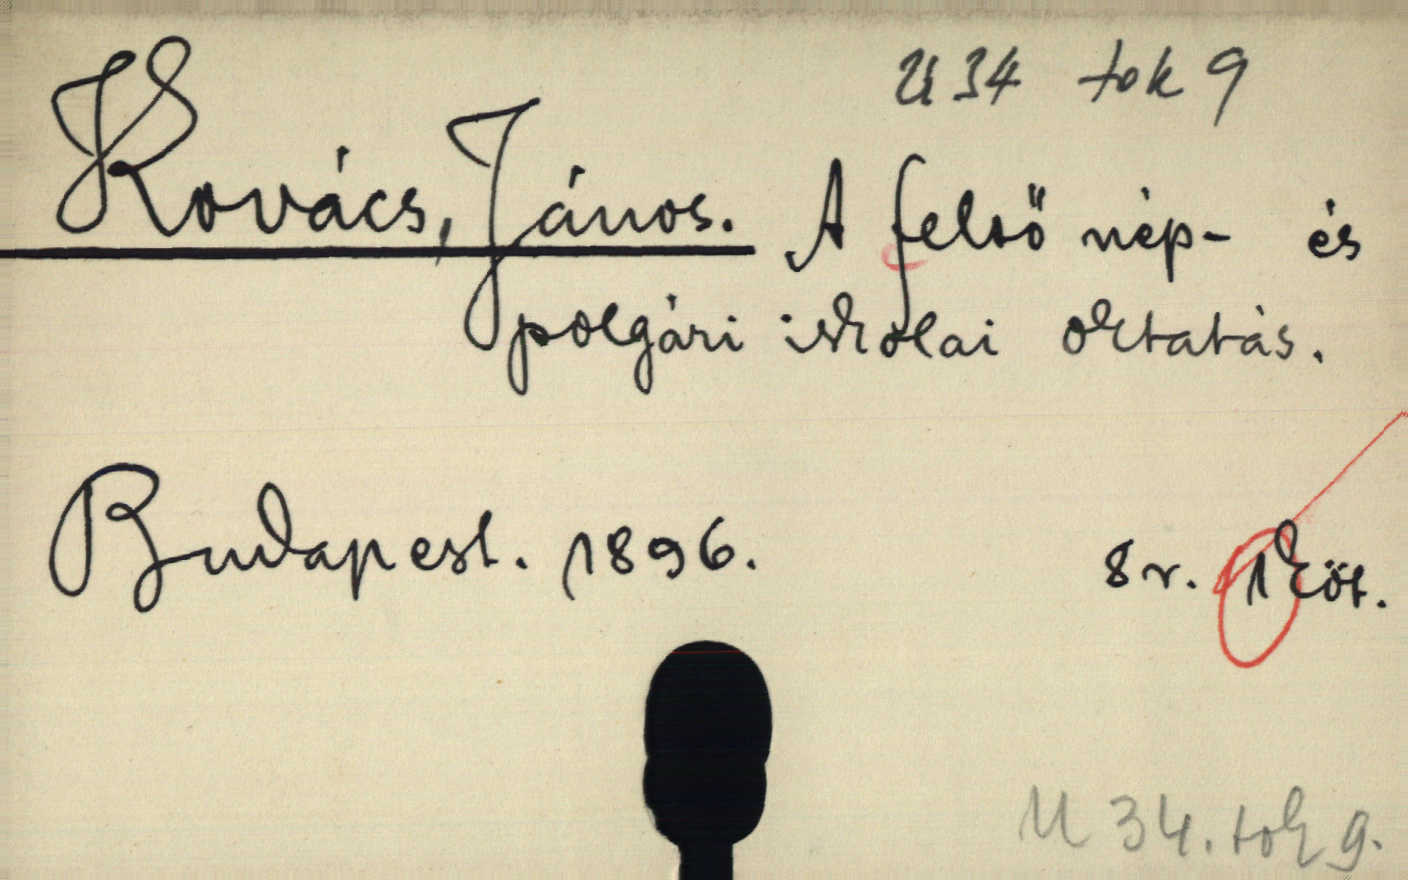 U 34 tok 9
Kovács, János. A felső nép- és
polgári iskolai oktatás.
Budapest. 1896. 8r. 1 köt.
U 34. tok 9.